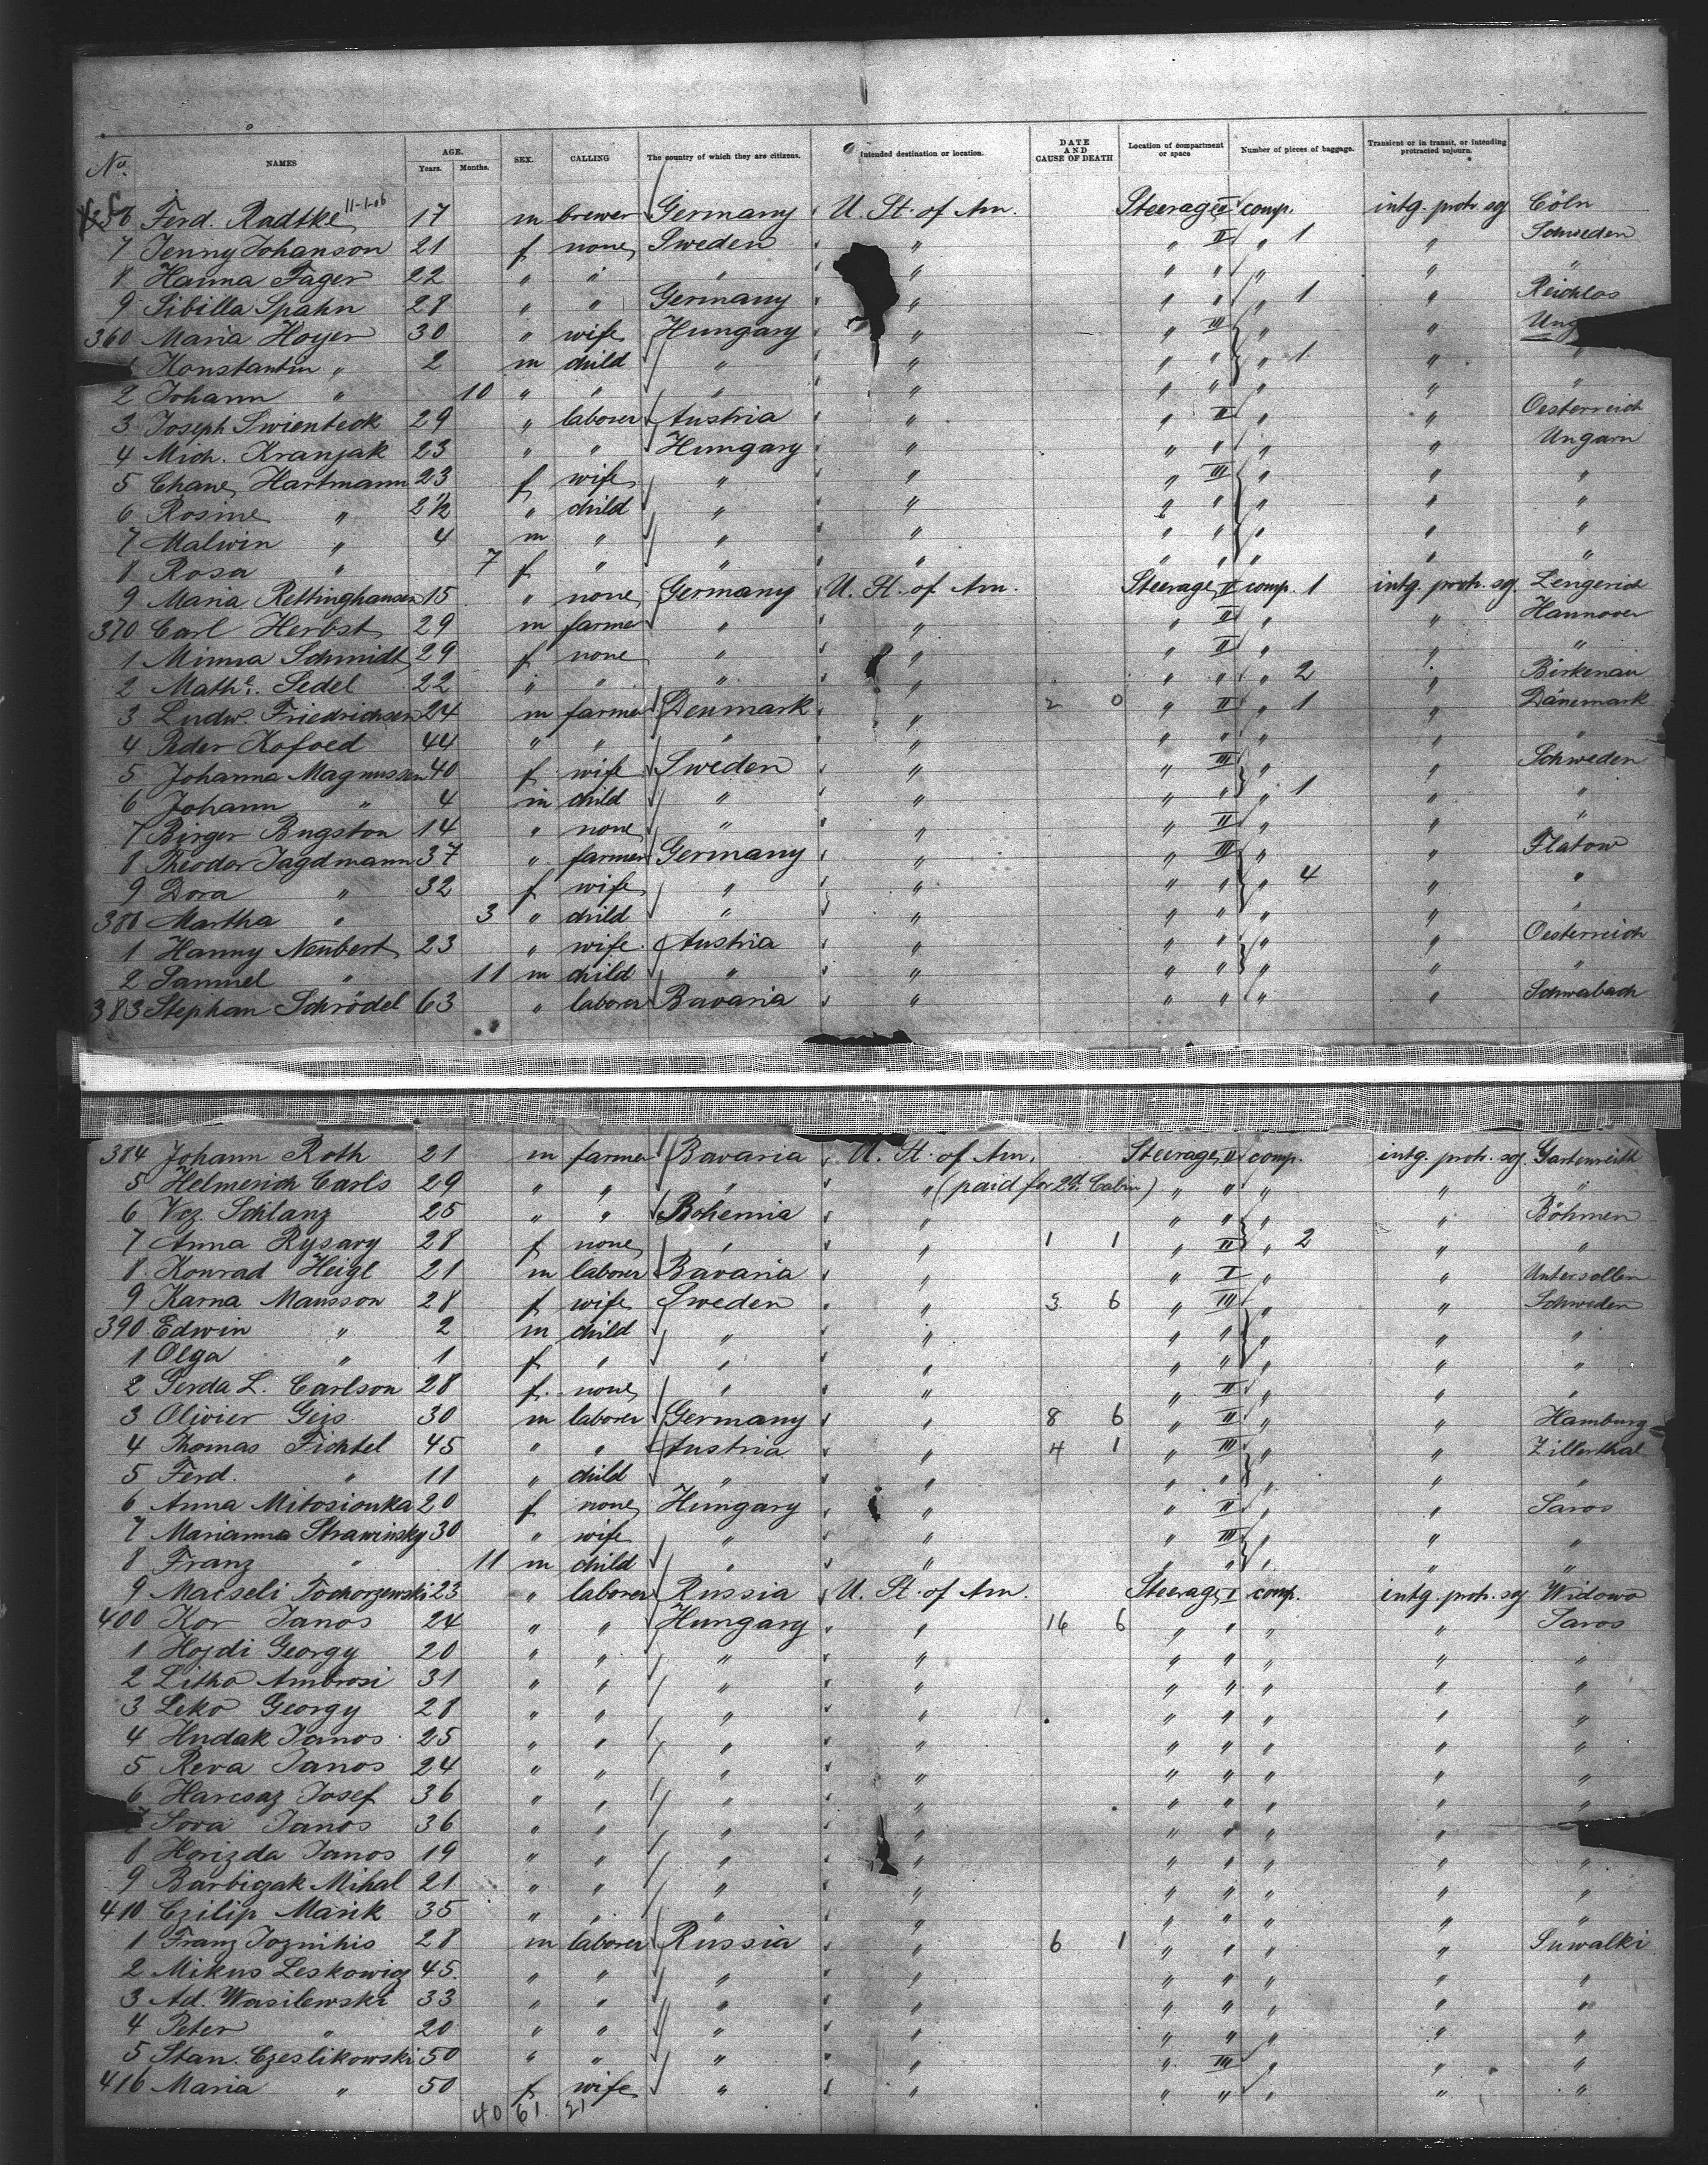 No. NAMES AGE. Years. Months. SEX. CALLING The country of which they are citizens. Intended destination or location. DATE AND CAUSE OF DEATH Location of compartment or space Number of pieces of baggage. Transient or in transit, or intending protracted sojourn.
356 Ferd. Radtke 11-1-06 17 m brewer Germany U. St. of Am. Steerage comp. intg. protr. soj Cöln
7 Jenny Johanson 21 f none Sweden " " II " 1 " Schweden
8 Hanna Fager 22 " " " " " " " " "
9 Sibilla Spahn 28 " " Germany " " " " 1 " Reichlos
360 Maria Hoyer 30 " wife Hungary " " III " " Ung
Konstantin " 2 m child " " " " " 1 " "
2 Johann " 10 " " " " " " " " "
3 Joseph Swienteck 29 " laborer Austria " " II " " Oesterreich
4 Mich. Kranjak 23 " " Hungary " " " " " Ungarn
5 Chane Hartmann 23 f wife " " " III " " "
6 Rosine " 2½ " child " " " " " " "
7 Malwin " 4 m " " " " " " " "
8 Rosa " 7 f " " " " " " " "
9 Maria Rettinghausen 15 " none Germany U. St. of Am. Steerage II comp. 1 intg. protr. soj. Lengerich
370 Carl Herbst 29 m farmer " " " II " " Hannover
1 Minna Schmidt 29 f none " " " II " " "
2 Mathe. Sedel 22 " " " " " " " 2 " Birkenau
3 Ludw. Friedrichsen 24 m farmer Denmark " 2 0 " II " 1 " Dänemark
4 Peder Kofoed 44 " " " " " " " " "
5 Johanna Magnussen 40 f wife Sweden " " III " " Schweden
6 Johann " 4 m child " " " " " 1 " "
7 Birger Bugston 14 " none " " " II " " "
8 Theodor Jagdmann 37 " farmer Germany " " III " " Flatow
9 Dora " 32 f wife " " " " " 4 " "
380 Martha " 3 " child " " " " " " "
1 Hanny Neubert 23 " wife Austria " " " " " Oesterreich
2 Samuel " 11 m child " " " " " " "
383 Stephan Schrödel 63 " laborer Bavaria " " " " " Schwabach
384 Johann Roth 21 m farmer Bavaria U. St. of Am. Steerage II comp. intg. protr. soj. Gartenreith
5 Helmerich Carls 29 " " " " (paid for 2d. Cabin) " " " " "
6 Vcz. Schlanz 25 " " Bohemia " " " " " Böhmen
7 Anna Rysavy 28 f none " " 1 1 " II " 2 " "
8 Konrad Heigl 21 m laborer Bavaria " " I " " Untersollen
9 Karna Mansson 28 f wife Sweden " 3 6 " III " " Schweden
390 Edwin " 2 m child " " " " " " "
1 Olga " 1 f " " " " " " " "
2 Gerda L. Carlson 28 f. none " " " II " " "
3 Olivier Geis. 30 m laborer Germany " 8 6 " II " " Hamburg
4 Thomas Fichtel 45 " " Austria " 4 1 " III " " Zillerthal
5 Ferd. " 11 " child " " " " " " "
6 Anna Mitosionka 20 f none Hungary " " II " " Saros
7 Marianna Strawinsky 30 " wife " " " III " " "
8 Franz " 11 m child " " " " " " "
9 Macseli Tochorzewski 23 " laborer Russia U. St. of Am. Steerage I comp. intg. protr. soj. Widowo
400 Kor Janos 24 " " Hungary " 16 6 " " " " Saros
1 Hojdi Georgy 20 " " " " " " " " "
2 Litka Ambrosi 31 " " " " " " " " "
3 Leko Georgy 28 " " " " " " " " "
4 Hudak Janos 25 " " " " " " " " "
5 Reva Janos 24 " " " " " " " " "
6 Harcsaz Josef 36 " " " " " " " " "
7 Sora Janos 36 " " " " " " " "
8 Horizda Janos 19 " " " " " " " " "
9 Barbizak Mihal 21 " " " " " " " " "
410 Czilip Marik 35 " " " " " " " " "
1 Franz Joznihis 28 m laborer Russia " 6 1 " " " " Suwalki
2 Mikus Leskowicz 45 " " " " " " " " "
3 Ad. Wasilewski 33 " " " " " " " " "
4 Peter " 20 " " " " " " " " "
5 Stan. Czeslikowski 50 " " " " " III " " "
416 Maria " 50 f wife " " " " " " "
40 61. 21